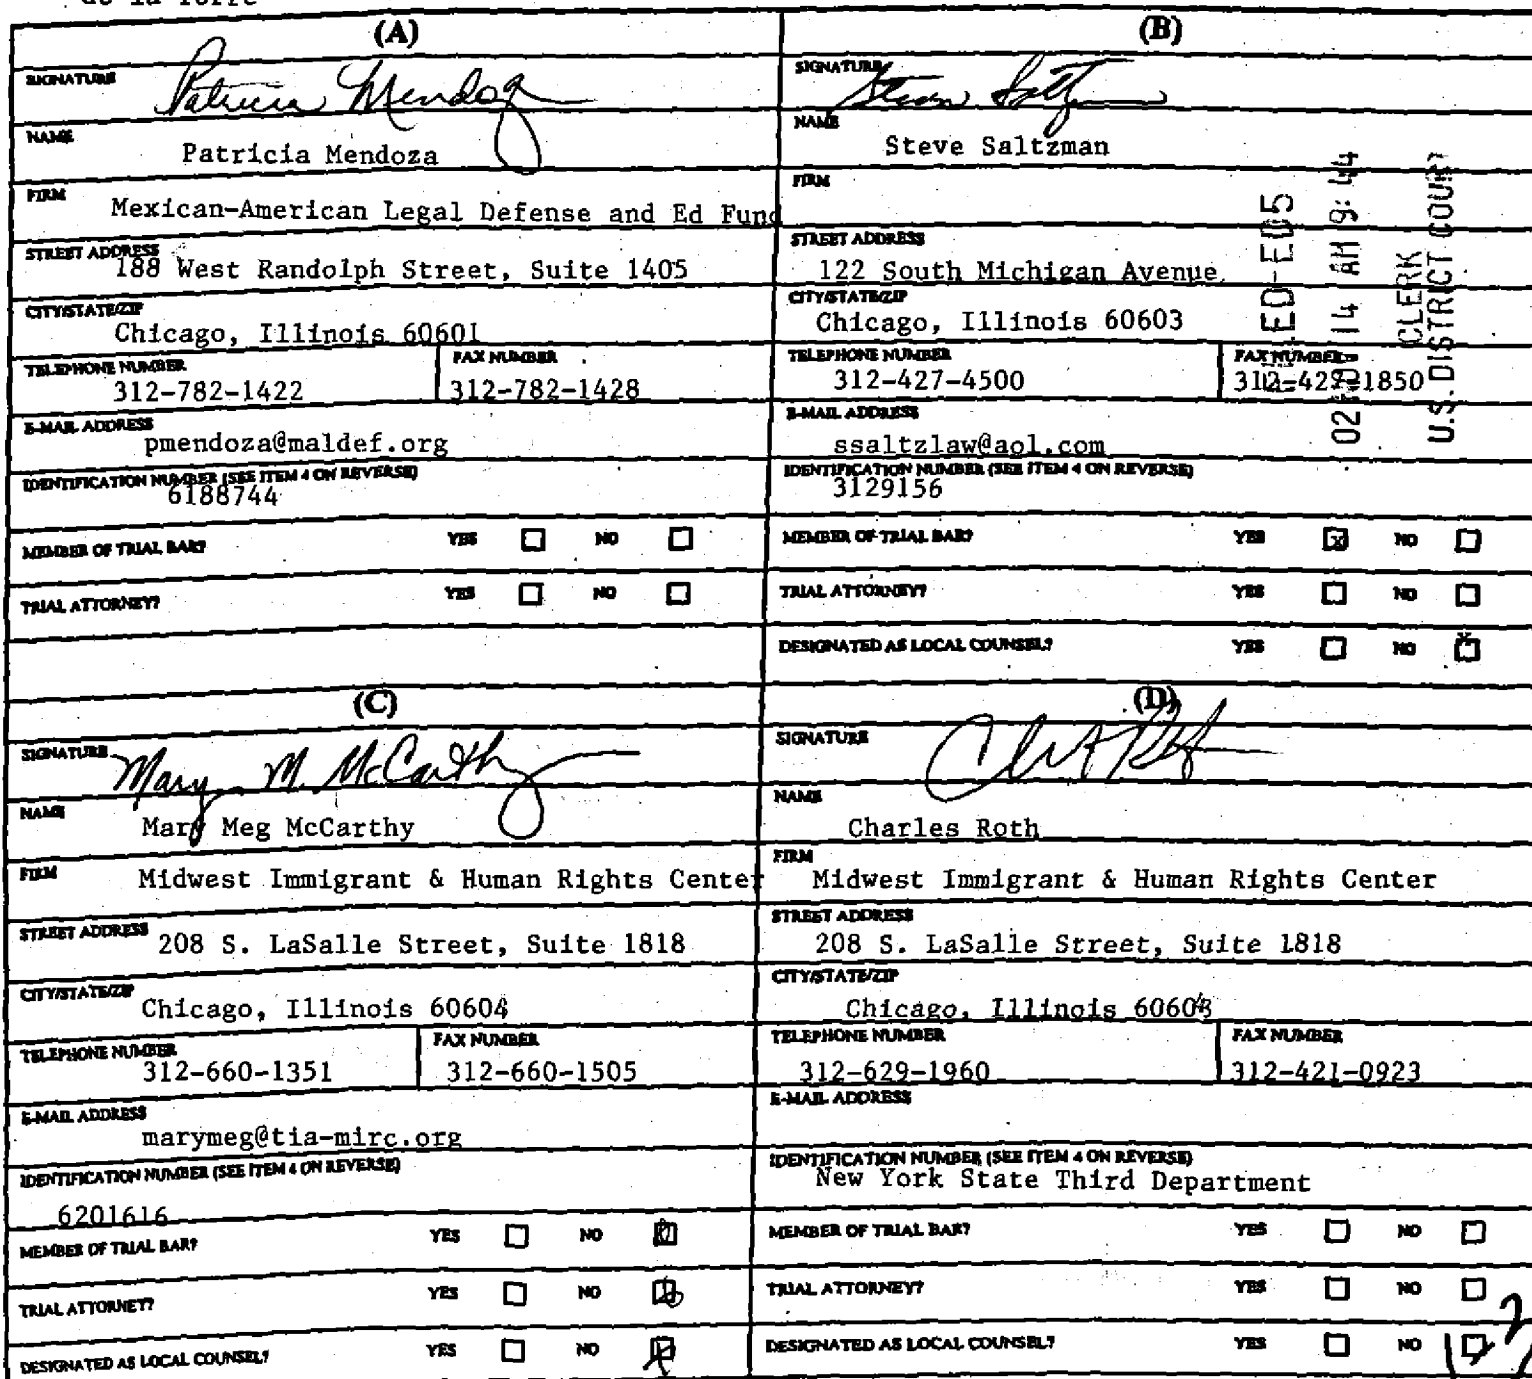 de la Torre
(A)
SIGNATURE Patricia Mendoza
NAME
Patricia Mendoza
FIRM
Mexican-American Legal Defense and Ed Fund
STREET ADDRESS
188 West Randolph Street, Suite 1405
CITY/STATE/ZIP
Chicago, Illinois 60601
TELEPHONE NUMBER
312-782-1422
FAX NUMBER
312-782-1428
E-MAIL ADDRESS
pmendoza@maldef.org
IDENTIFICATION NUMBER (SEE ITEM 4 ON REVERSE)
6188744
MEMBER OF TRIAL BAR? YES NO
TRIAL ATTORNEY? YES NO
(B)
SIGNATURE
NAME
Steve Saltzman
FIRM
STREET ADDRESS
122 South Michigan Avenue
CITY/STATE/ZIP
Chicago, Illinois 60603
TELEPHONE NUMBER
312-427-4500
FAX NUMBER
312-427-1850
E-MAIL ADDRESS
ssaltzlaw@aol.com
IDENTIFICATION NUMBER (SEE ITEM 4 ON REVERSE)
3129156
MEMBER OF TRIAL BAR? YES x NO
TRIAL ATTORNEY? YES NO
DESIGNATED AS LOCAL COUNSEL? YES NO x
14 AM 9:44
CLERK
U.S. DISTRICT COURT
(C)
SIGNATURE Mary M. McCarthy
NAME
Mary Meg McCarthy
FIRM
Midwest Immigrant & Human Rights Center
STREET ADDRESS
208 S. LaSalle Street, Suite 1818
CITY/STATE/ZIP
Chicago, Illinois 60604
TELEPHONE NUMBER
312-660-1351
FAX NUMBER
312-660-1505
E-MAIL ADDRESS
marymeg@tia-mirc.org
IDENTIFICATION NUMBER (SEE ITEM 4 ON REVERSE)
6201616
MEMBER OF TRIAL BAR? YES NO
TRIAL ATTORNEY? YES NO
DESIGNATED AS LOCAL COUNSEL? YES NO
(D)
SIGNATURE
NAME
Charles Roth
FIRM
Midwest Immigrant & Human Rights Center
STREET ADDRESS
208 S. LaSalle Street, Suite 1818
CITY/STATE/ZIP
Chicago, Illinois 60604
TELEPHONE NUMBER
312-629-1960
FAX NUMBER
312-421-0923
E-MAIL ADDRESS
IDENTIFICATION NUMBER (SEE ITEM 4 ON REVERSE)
New York State Third Department
MEMBER OF TRIAL BAR? YES NO
TRIAL ATTORNEY? YES NO
DESIGNATED AS LOCAL COUNSEL? YES NO